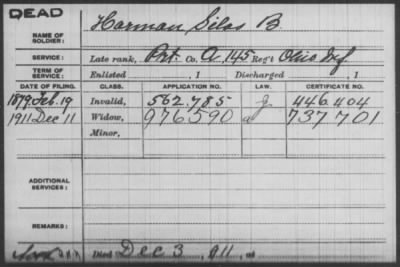 DEAD
NAME OF SOLDIER: Harman Silas B.
SERVICE: Late rank, Prt. Co. A, 145 Reg't Ohio Inf
TERM OF SERVICE: Enlisted , 1 Discharged , 1
DATE OF FILING. CLASS. APPLICATION NO. LAW. CERTIFICATE NO.
1879 Feb. 19 Invalid, 562.785 g 446.404
1911 Dec 11 Widow, 976590 a 737701
Minor,
ADDITIONAL SERVICES:
REMARKS:
Died Dec 3, 911, at